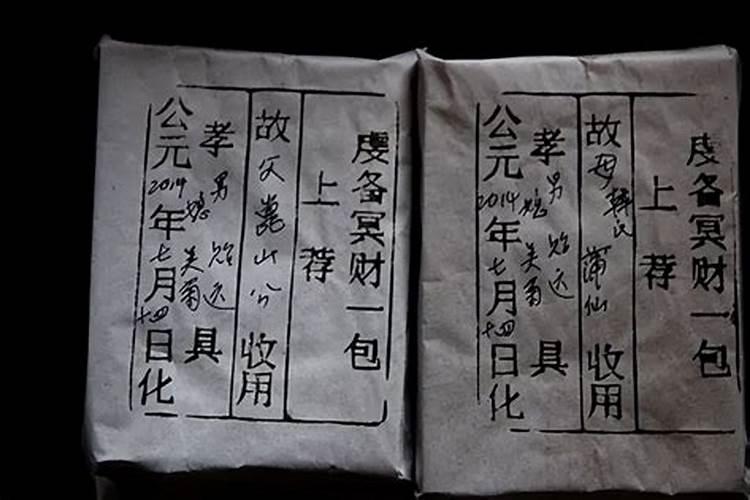 虔备冥财一包
上荐
故父嵩山公收用
孝男 贻远 具
媳 关菊
公元2014年七月十四日化
虔备冥财一包
上荐
故母韩氏蒲仙收用
孝男 贻远 具
媳 关菊
公元2014年七月十四日化